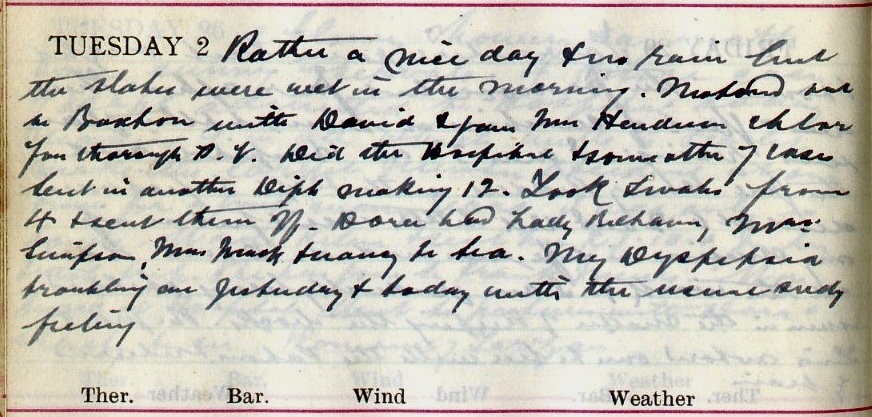 TUESDAY 2 Rather a nice day & no rain but
the slates were wet in the morning. Motored out
to Buxton with David & gave Mrs Henderson chlor
for thorough P.V. Did the Hospital & some other 7 cases
Sent in another Diph making 12. Took swabs from
4 & sent them off. Dora had Lady Bethany, Mrs.
Simpson, Mrs & Nancy to tea. My Dyspepsia
troubling me yesterday & today with the usual seedy
feeling
Ther. Bar. Wind Weather